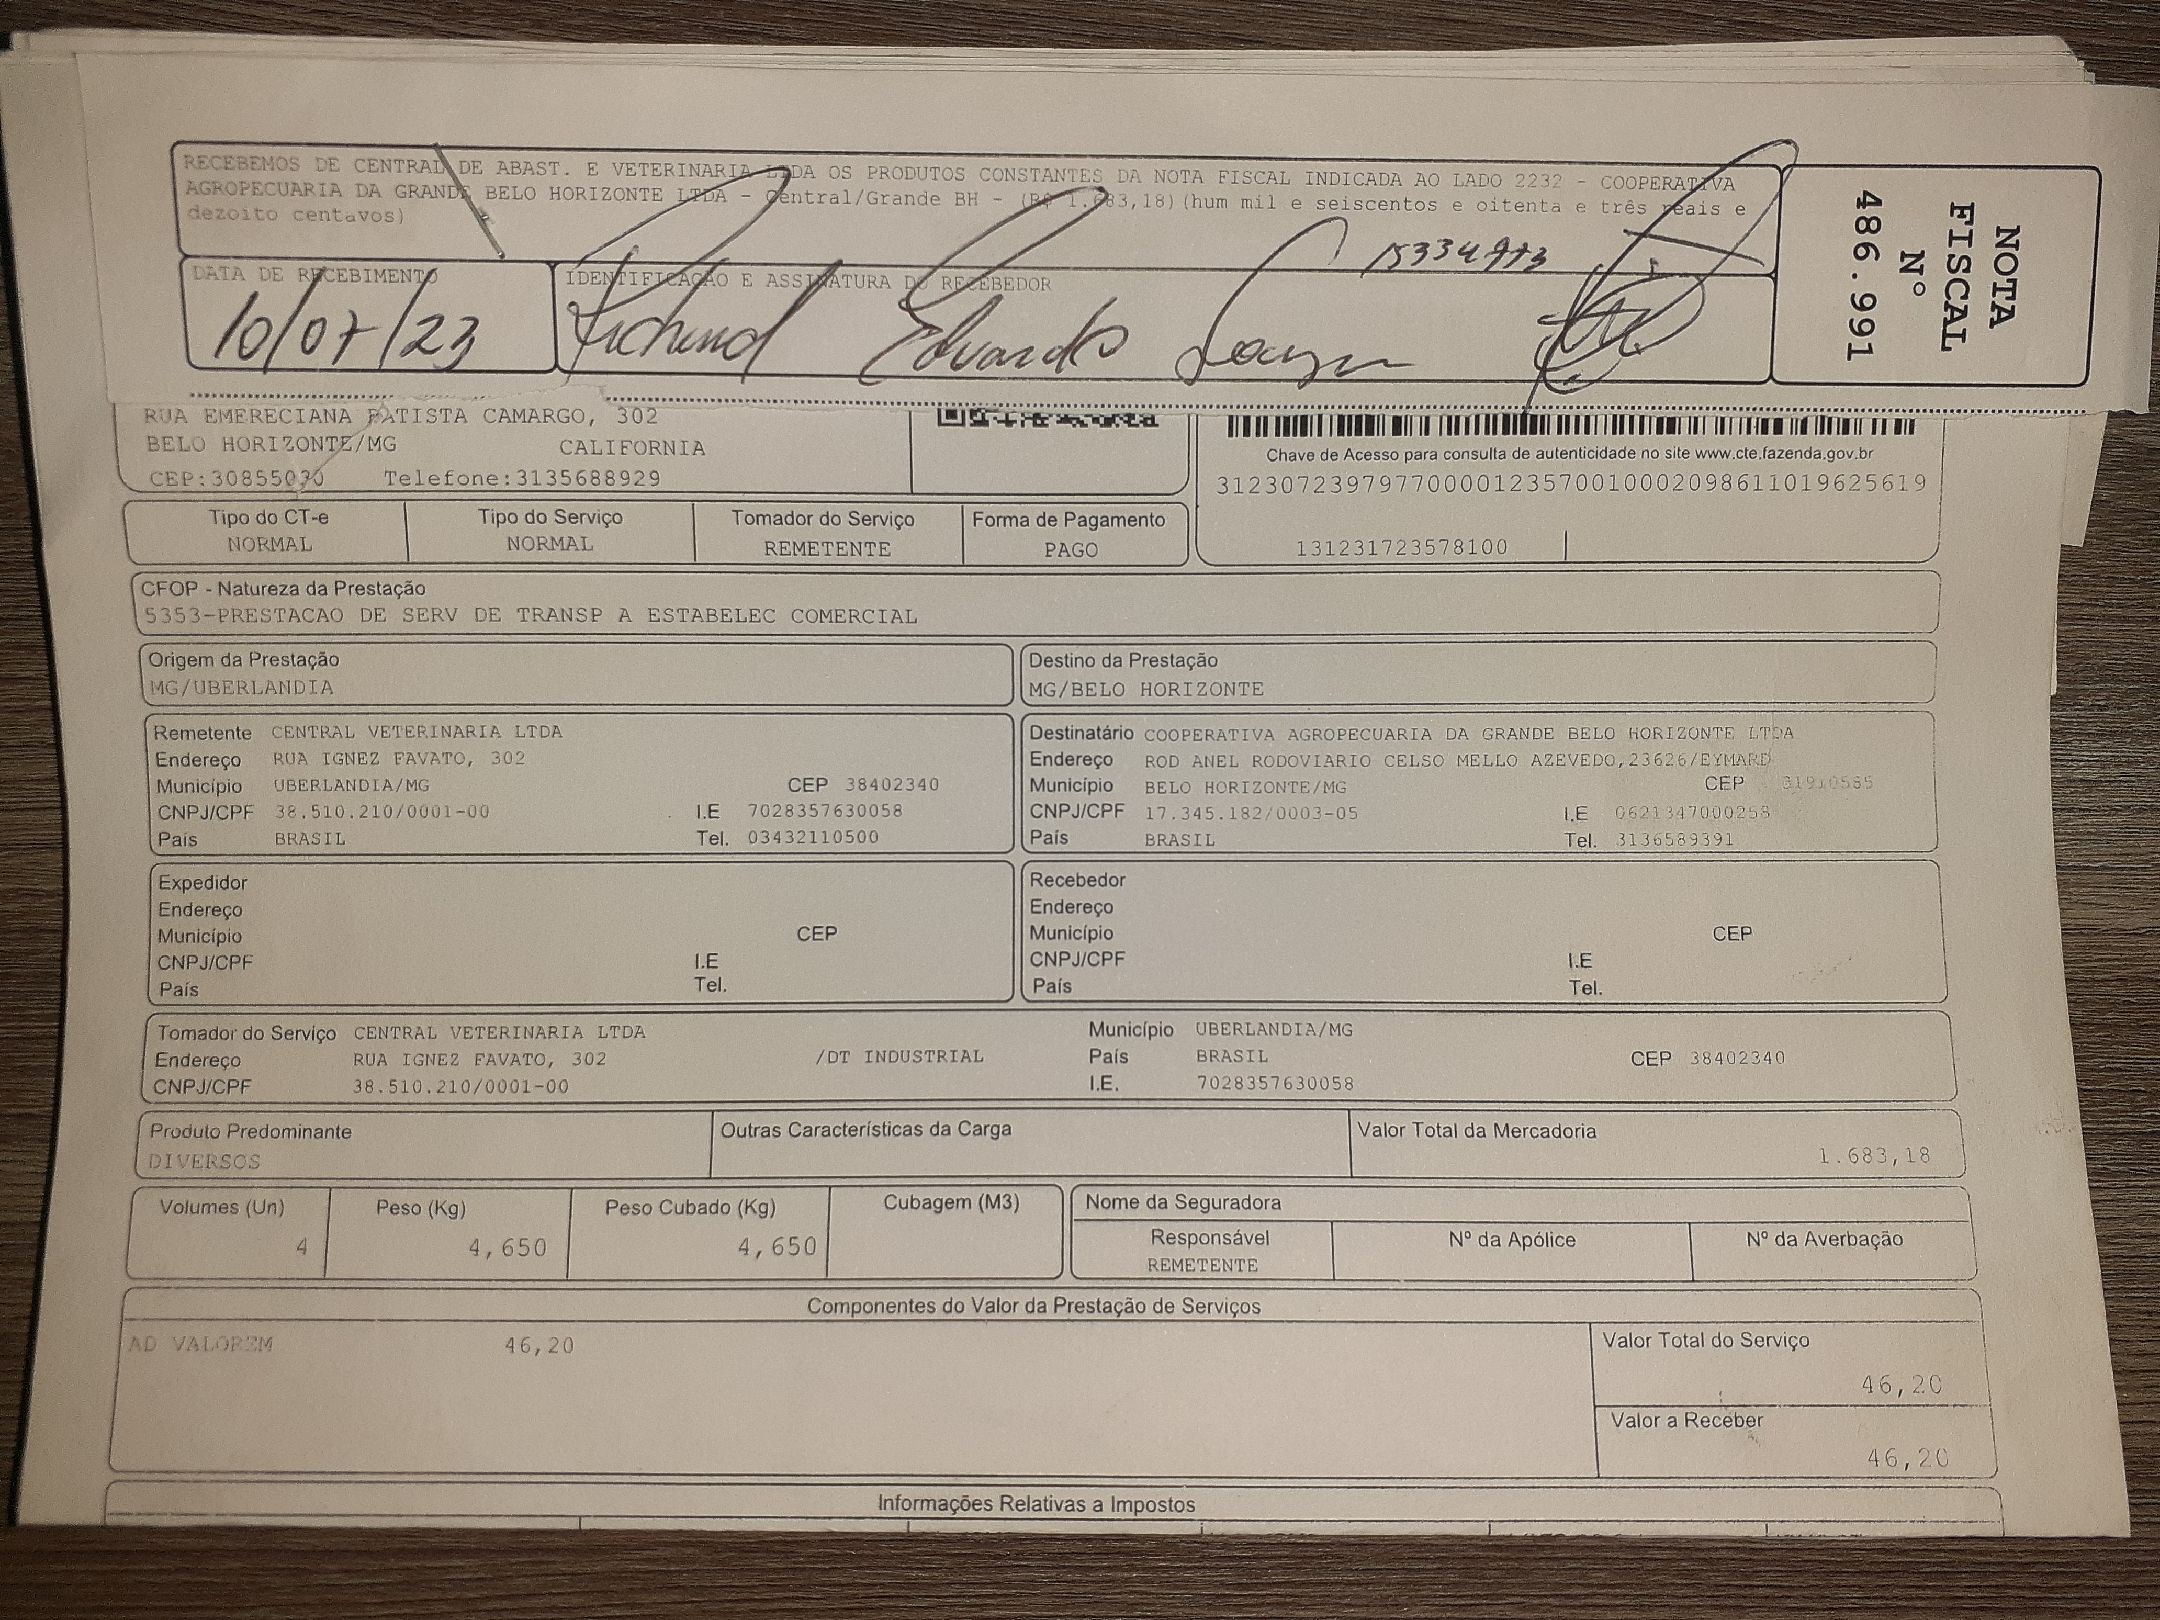 RECEBEMOS DE CENTRAL DE ABAST. E VETERINARIA LTDA OS PRODUTOS CONSTANTES DA NOTA FISCAL INDICADA AO LADO 2232 - COOPERATIVA
AGROPECUARIA DA GRANDE BELO HORIZONTE LTDA - Central/Grande BH - (R$ 1.683,18)(hum mil e seiscentos e oitenta e três reais e
dezoito centavos)
DATA DE RECEBIMENTO
10/07/23
IDENTIFICAÇÃO E ASSINATURA DO RECEBEDOR
Eduardo
NOTA
FISCAL
Nº
486.991
RUA EMERECIANA BATISTA CAMARGO, 302
BELO HORIZONTE/MG CALIFORNIA
CEP:30855030 Telefone:3135688929
Chave de Acesso para consulta de autenticidade no site www.cte.fazenda.gov.br
31230723979770000123570010002098611019625619
131231723578100
Tipo do CT-e
NORMAL
Tipo do Serviço
NORMAL
Tomador do Serviço
REMETENTE
Forma de Pagamento
PAGO
CFOP - Natureza da Prestação
5353-PRESTACAO DE SERV DE TRANSP A ESTABELEC COMERCIAL
Origem da Prestação
MG/UBERLANDIA
Destino da Prestação
MG/BELO HORIZONTE
Remetente CENTRAL VETERINARIA LTDA
Endereço RUA IGNEZ FAVATO, 302
Município UBERLANDIA/MG CEP 38402340
CNPJ/CPF 38.510.210/0001-00 I.E 7028357630058
País BRASIL Tel. 03432110500
Destinatário COOPERATIVA AGROPECUARIA DA GRANDE BELO HORIZONTE LTDA
Endereço ROD ANEL RODOVIARIO CELSO MELLO AZEVEDO,23626/EYMARD
Município BELO HORIZONTE/MG CEP 31910585
CNPJ/CPF 17.345.182/0003-05 I.E 0621347000258
País BRASIL Tel. 3136589391
Expedidor
Endereço
Município CEP
CNPJ/CPF I.E
País Tel.
Recebedor
Endereço
Município CEP
CNPJ/CPF I.E
País Tel.
Tomador do Serviço CENTRAL VETERINARIA LTDA Município UBERLANDIA/MG
Endereço RUA IGNEZ FAVATO, 302 /DT INDUSTRIAL País BRASIL CEP 38402340
CNPJ/CPF 38.510.210/0001-00 I.E. 7028357630058
Produto Predominante
DIVERSOS
Outras Características da Carga
Valor Total da Mercadoria
1.683,18
Volumes (Un)
4
Peso (Kg)
4,650
Peso Cubado (Kg)
4,650
Cubagem (M3)
Nome da Seguradora
Responsável
REMETENTE
Nº da Apólice
Nº da Averbação
Componentes do Valor da Prestação de Serviços
AD VALOREM 46,20
Valor Total do Serviço
46,20
Valor a Receber
46,20
Informações Relativas a Impostos